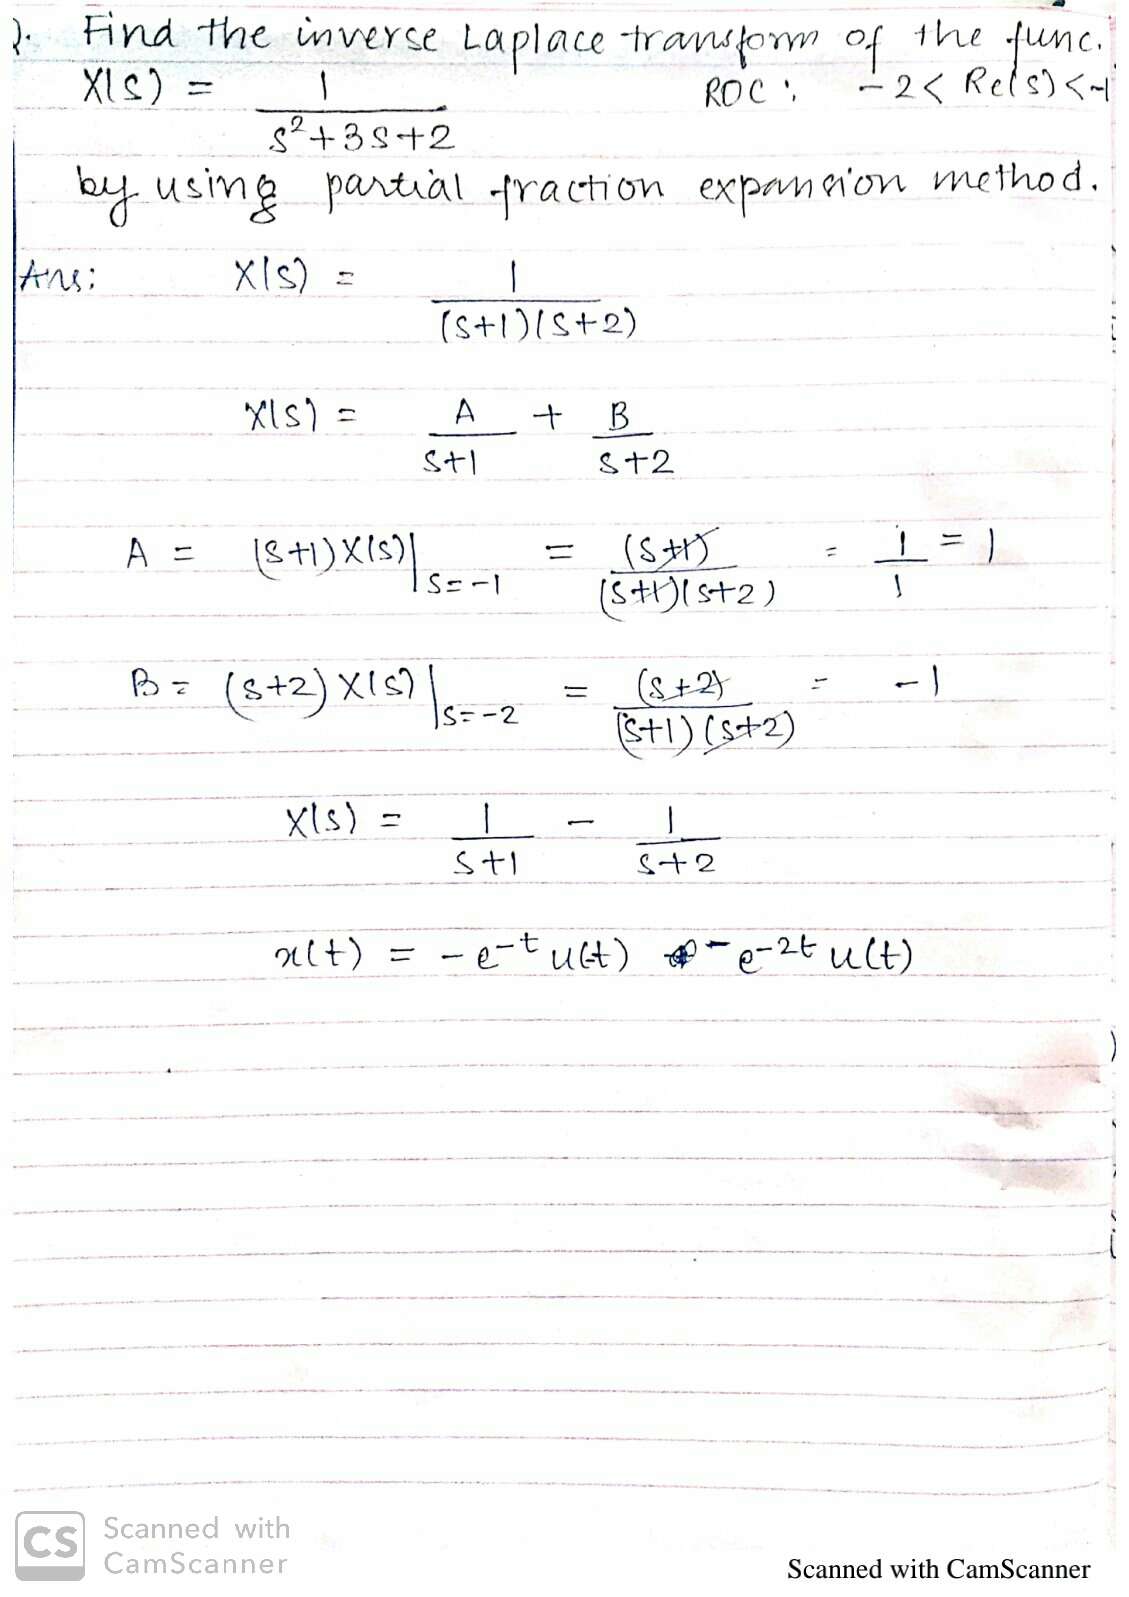 2. Find the inverse Laplace transform of the func.
X(s) = 1 / (s²+3s+2) ROC : -2 < Re(s) < -1
by using partial fraction expansion method.
Ans: X(s) = 1 / ((s+1)(s+2))
X(s) = A / (s+1) + B / (s+2)
A = (s+1) X(s)|s=-1 = (s+1) / ((s+1)(s+2)) = 1/1 = 1
B = (s+2) X(s)|s=-2 = (s+2) / ((s+1)(s+2)) = -1
X(s) = 1 / (s+1) - 1 / (s+2)
x(t) = -e^-t u(-t) - e^-2t u(t)
CS Scanned with
CamScanner
Scanned with CamScanner